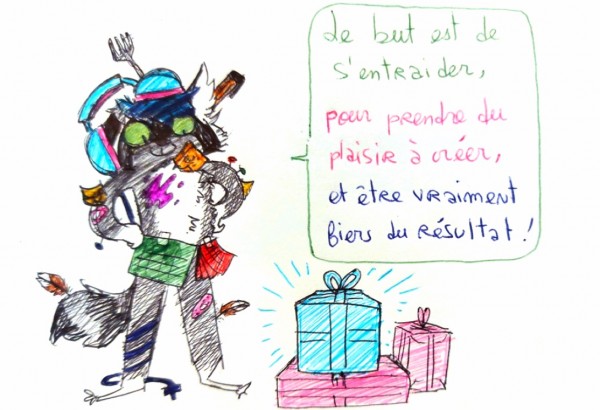 Le but est de
s'entraider,
pour prendre du
plaisir à créer,
et être vraiment
fiers du résultat !